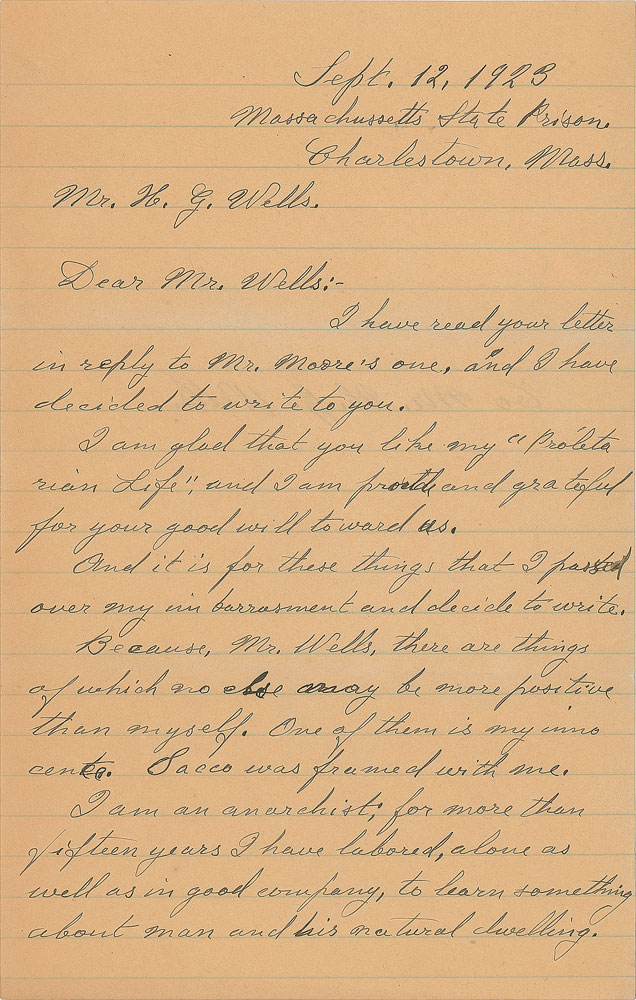 Sept. 12, 1923
Massachussetts State Prison.
Charlestown, Mass.
Mr. H. G. Wells.
Dear Mr. Wells:-
I have read your letter
in reply to Mr. Moore's one, and I have
decided to write to you.
I am glad that you like my "Proleta
rian Life", and I am proud and grateful
for your good will toward us.
And it is for these things that I passed
over my imbarrasment and decide to write.
Because, Mr. Wells, there are things
of which no else may be more positive
than myself. One of them is my inno
cence. Sacco was framed with me.
I am an anarchist; for more than
fifteen years I have labored, alone as
well as in good company, to learn something
about man and his natural dwelling.